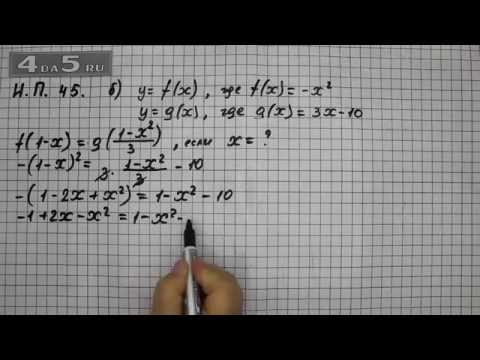 4DA5.RU
Н.П. 45. б) y = f(x), где f(x) = -x²
y = g(x), где g(x) = 3x - 10
f(1-x) = g((1-x²)/3), если x = ?
-(1-x)² = 3 · (1-x²)/3 - 10
-(1-2x+x²) = 1-x² - 10
-1+2x-x² = 1-x² -